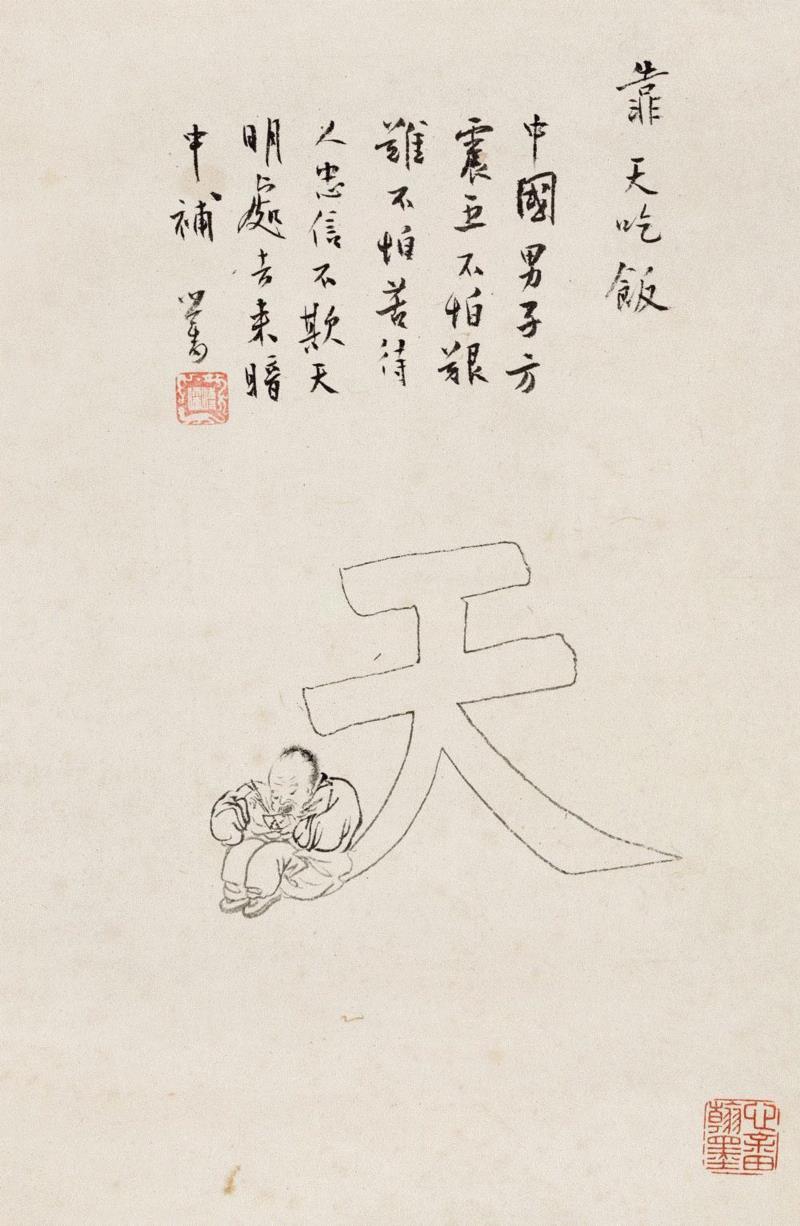 靠天吃飯
中國男子方
震五不怕艱
難不怕苦待
人忠信不欺天
明處去來暗
中補 心畬
心畬翰墨